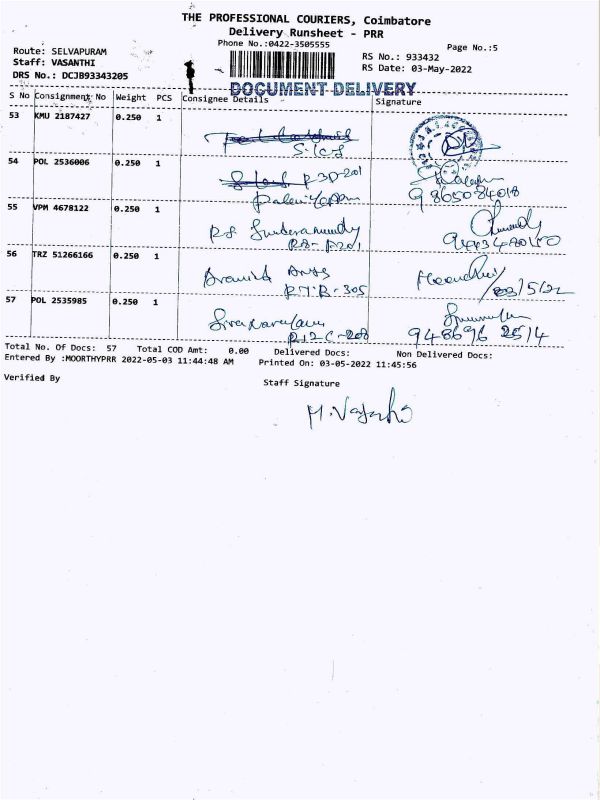 THE PROFESSIONAL COURIERS, Coimbatore
Delivery Runsheet - PRR
Phone No.:0422-3505555
Page No.:5
Route: SELVAPURAM
Staff: VASANTHI
DRS No.: DCJB93343205
RS No.: 933432
RS Date: 03-May-2022
DOCUMENT DELIVERY
S No Consignment No Weight PCS Consignee Details Signature
53 KMU 2187427 0.250 1
54 POL 2536006 0.250 1 R3D-201
9865084018
55 VPM 4678122 0.250 1
56 TRZ 51266166 0.250 1
R7B-305 /03/5/22
57 POL 2535985 0.250 1
R12C-208 948696 2514
Total No. Of Docs: 57 Total COD Amt: 0.00 Delivered Docs: Non Delivered Docs:
Entered By :MOORTHYPRR 2022-05-03 11:44:48 AM Printed On: 03-05-2022 11:45:56
Verified By
Staff Signature